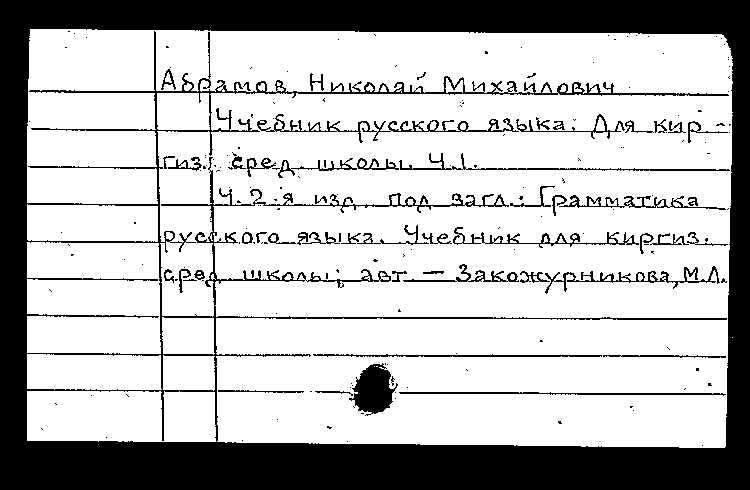 Абрамов, Николай Михайлович
Учебник русского языка. Для кир-
гиз. сред. школы. Ч.1.
Ч. 2-я изд. под загл.: Грамматика
русского языка. Учебник для киргиз.
сред. школы; авт. — Закожурникова, М.Л.